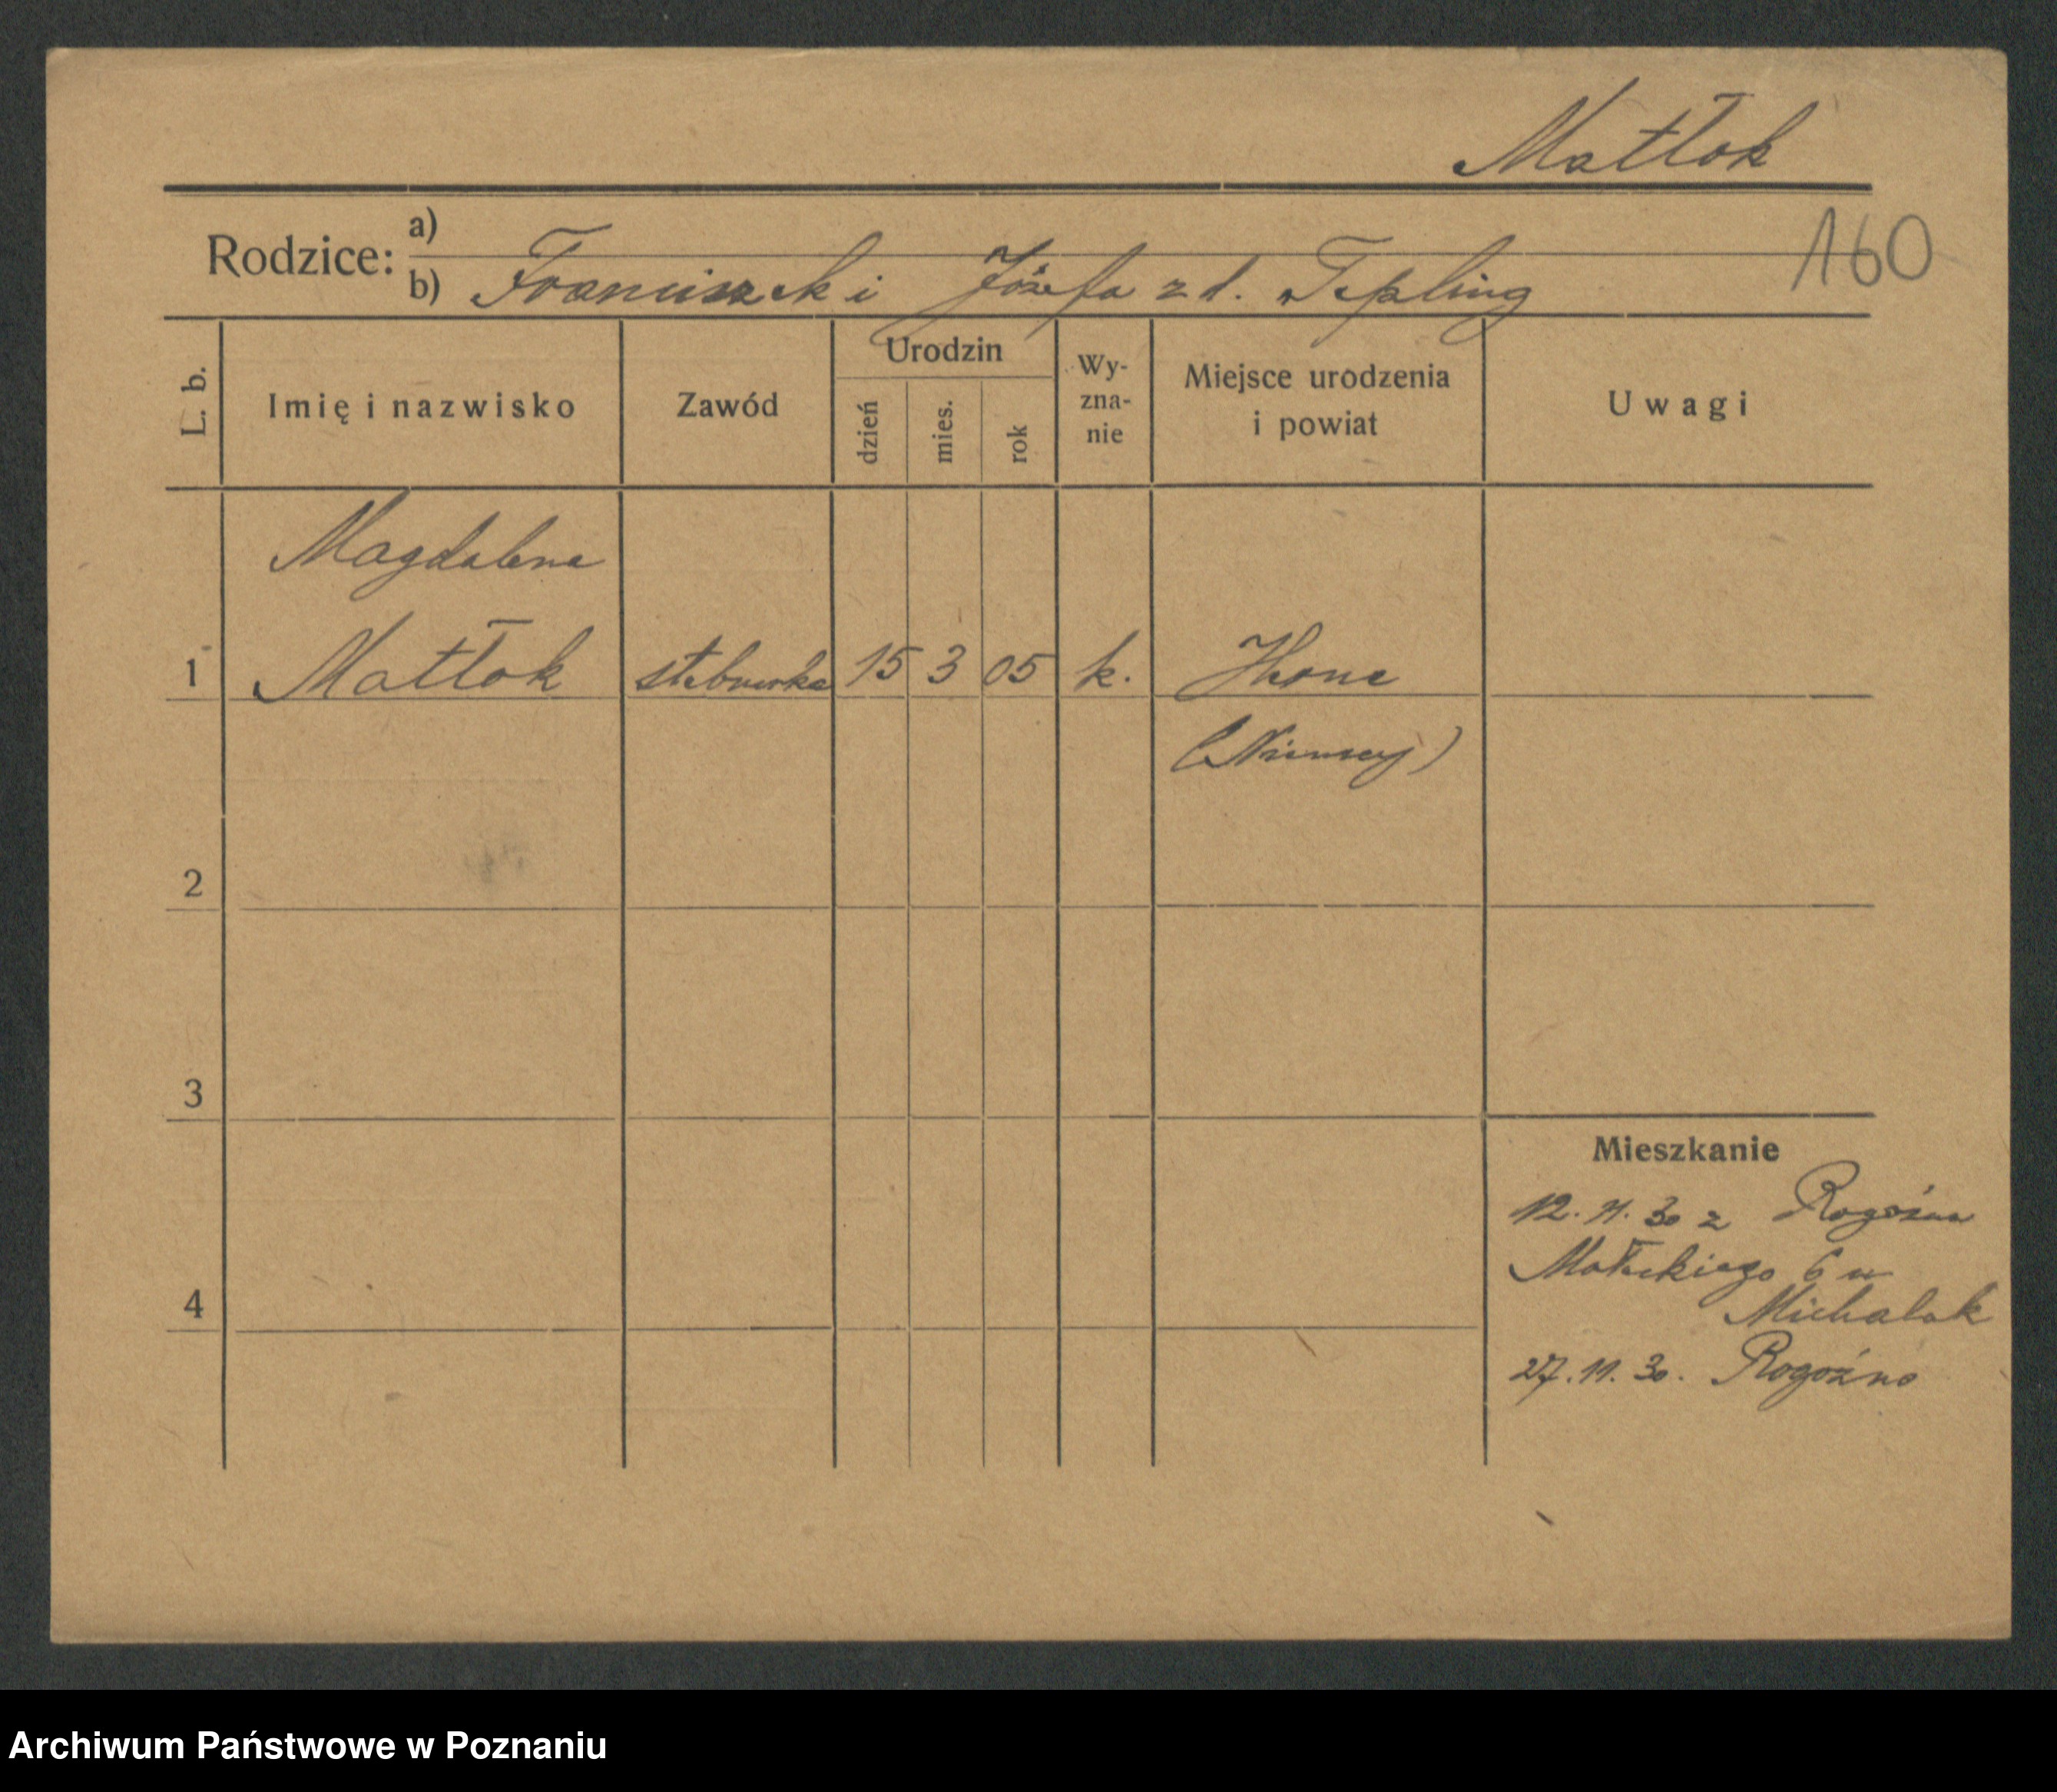 Matłok
160
Rodzice:
a)
b) Franciszek i Józefa z d. Tepling
L. b.
Imię i nazwisko
Zawód
Urodzin
dzień
mies.
rok
Wy-
zna-
nie
Miejsce urodzenia
i powiat
Uwagi
Magdalena
1 Matłok 15 3 05 k.
(Niemcy)
2
3
4
Mieszkanie
12. 11. 30 z Rogoźna
Małeckiego 6 u
Michalak
27. 11. 30. Rogoźno
Archiwum Państwowe w Poznaniu